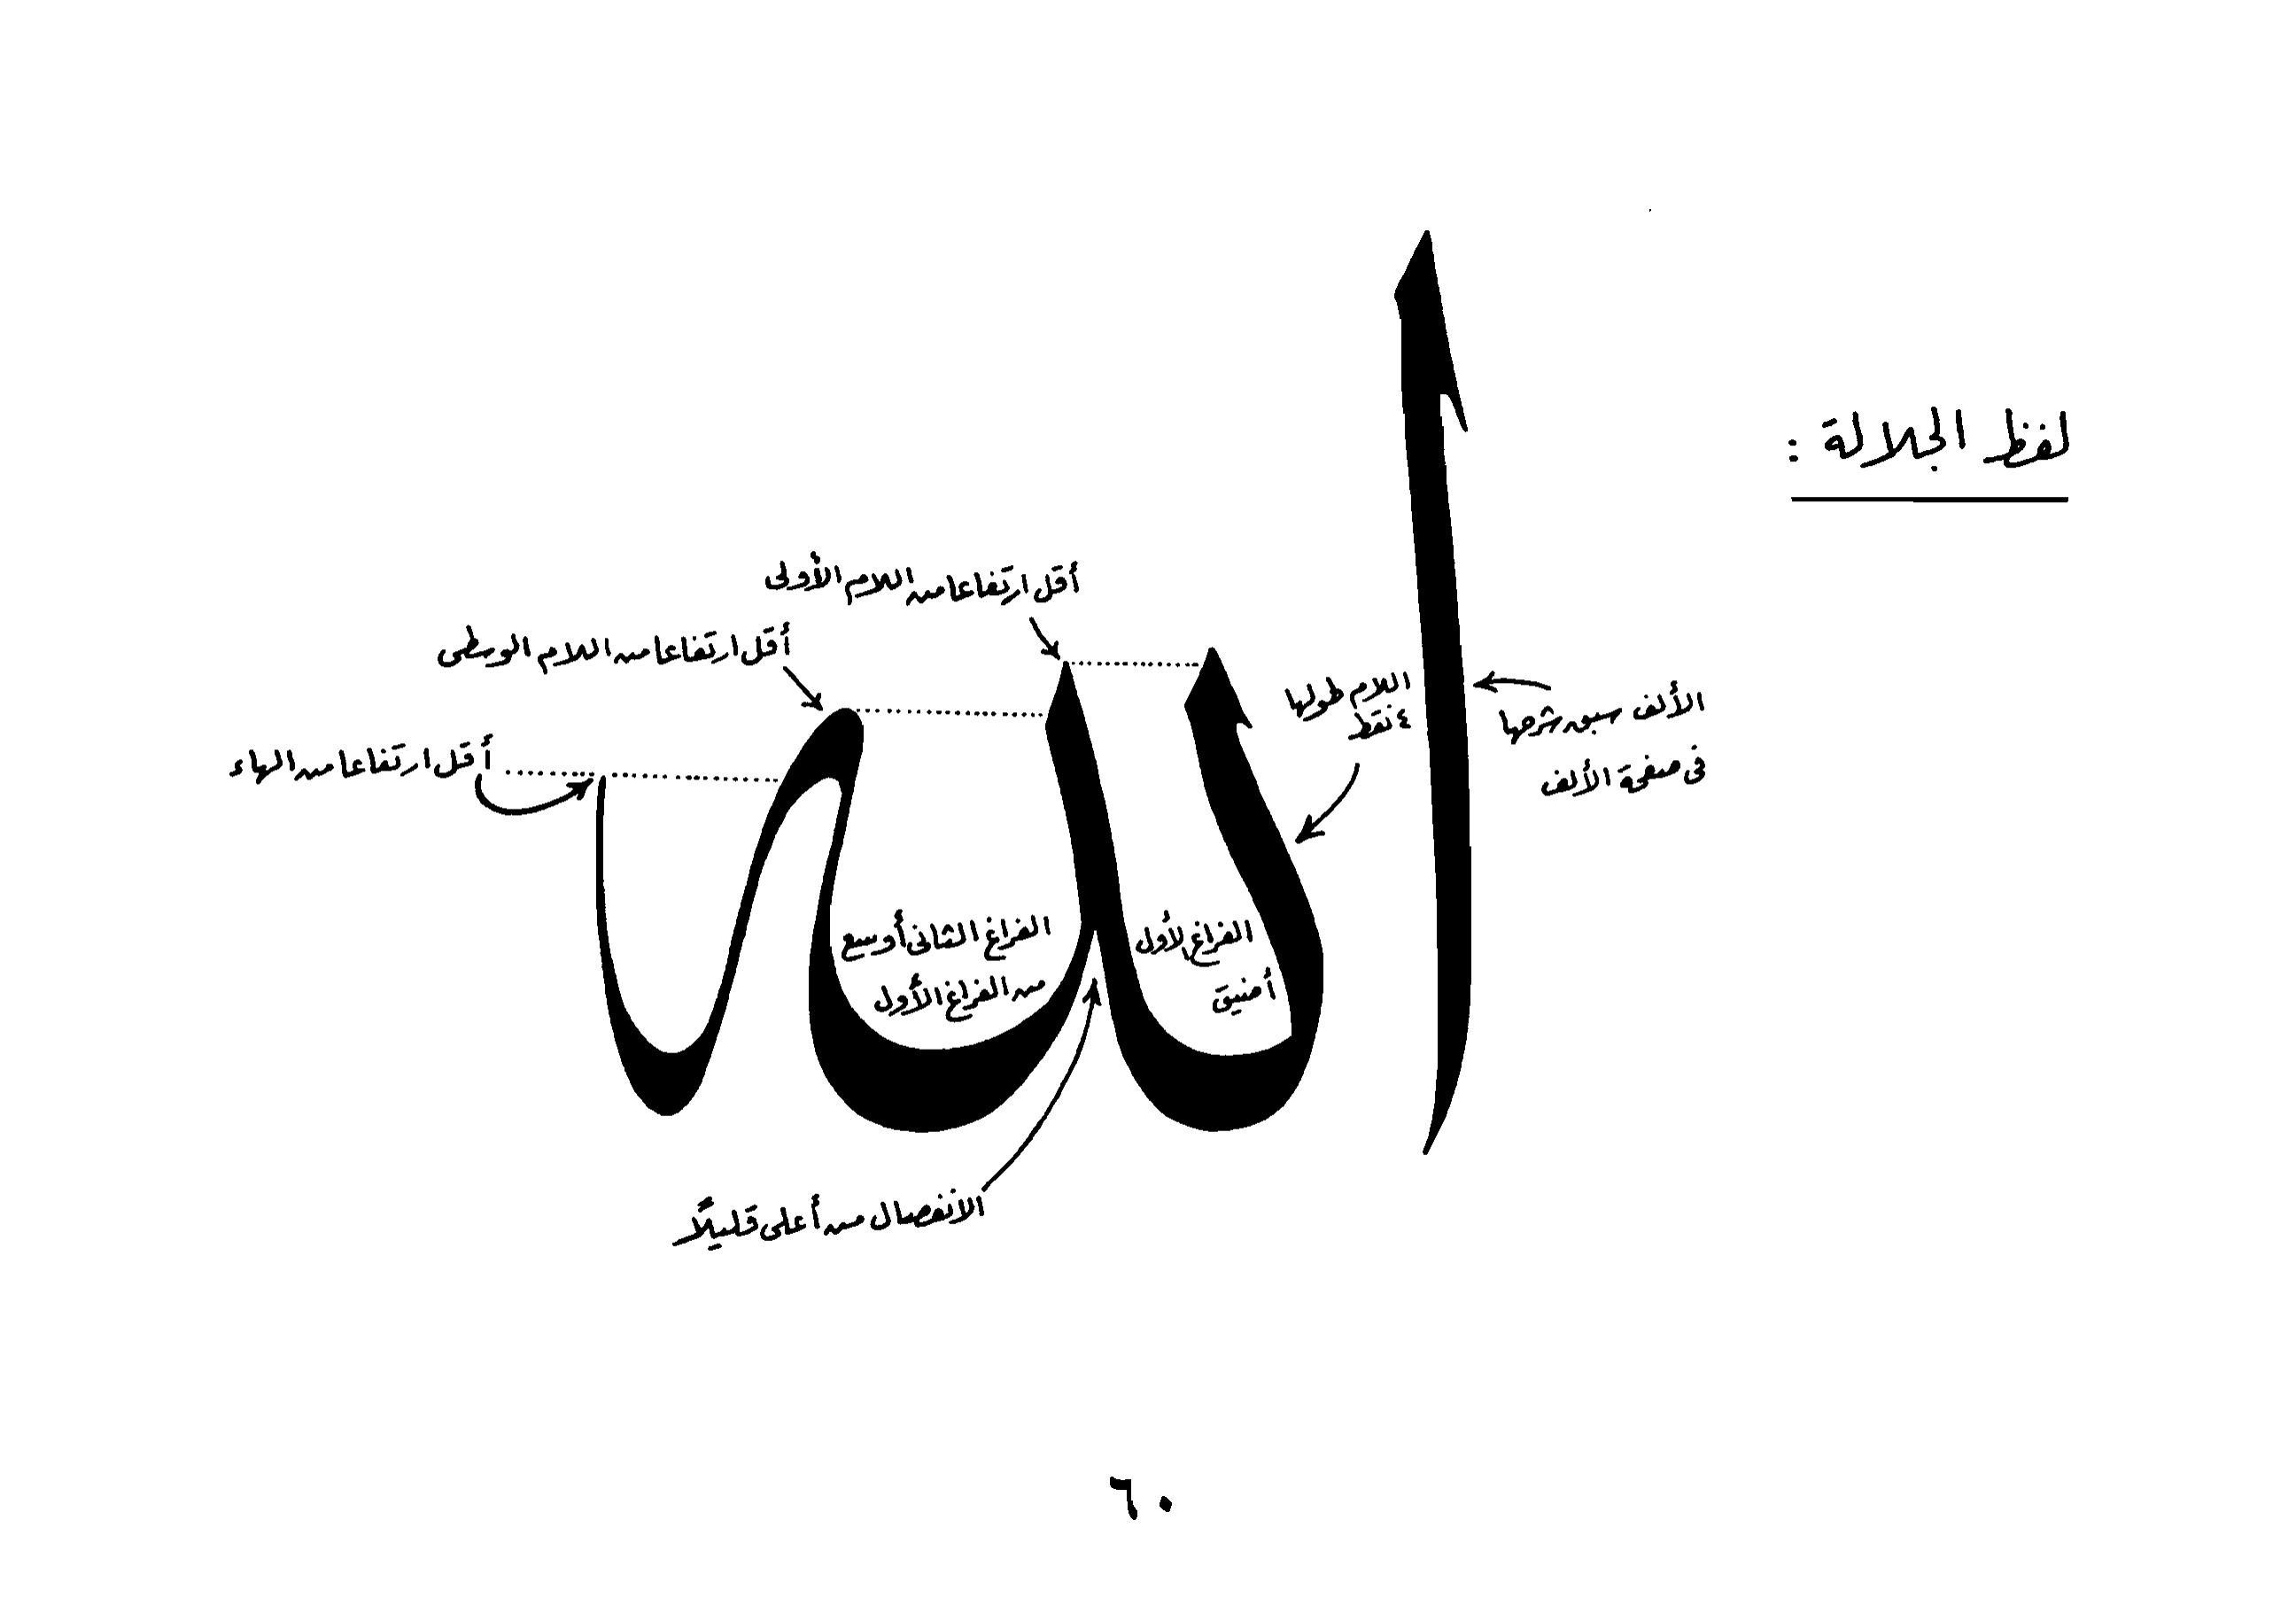 لفظ الجلالة :
الله
أقل ارتفاعا من اللام الأولى
أقل ارتفاعا من اللام الوسطى
أقل ارتفاعا من الهاء
اللام طولها
٤ نقط
الألف سبق شرحها
فى صفحة الألف
الفراغ الأول
أضيق
الفراغ الثانى أوسع
من الفراغ الأول
الانفصال من أعلى قليلاً
٦٠